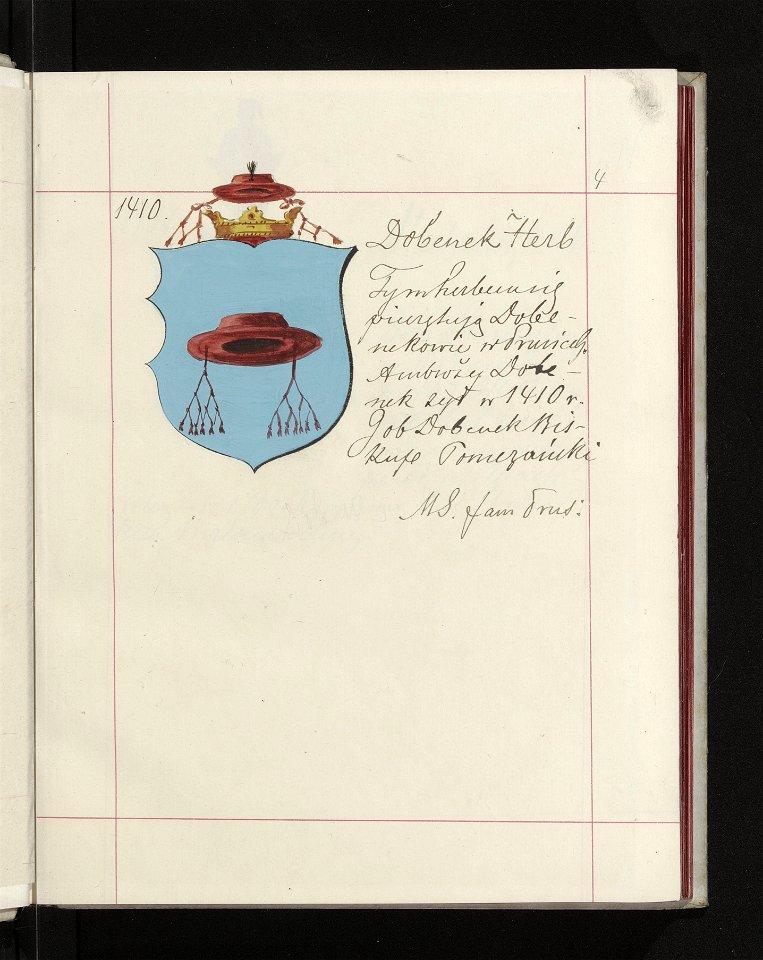 4
1410.
Dobenek Herb
Tym herbem się
pieczętują Dobe-
nekowie w Prusiech.
Ambroży Dobe-
nek żył w 1410 r.
Job Dobenek Bis-
kup Pomezański
MS. fam Prus: